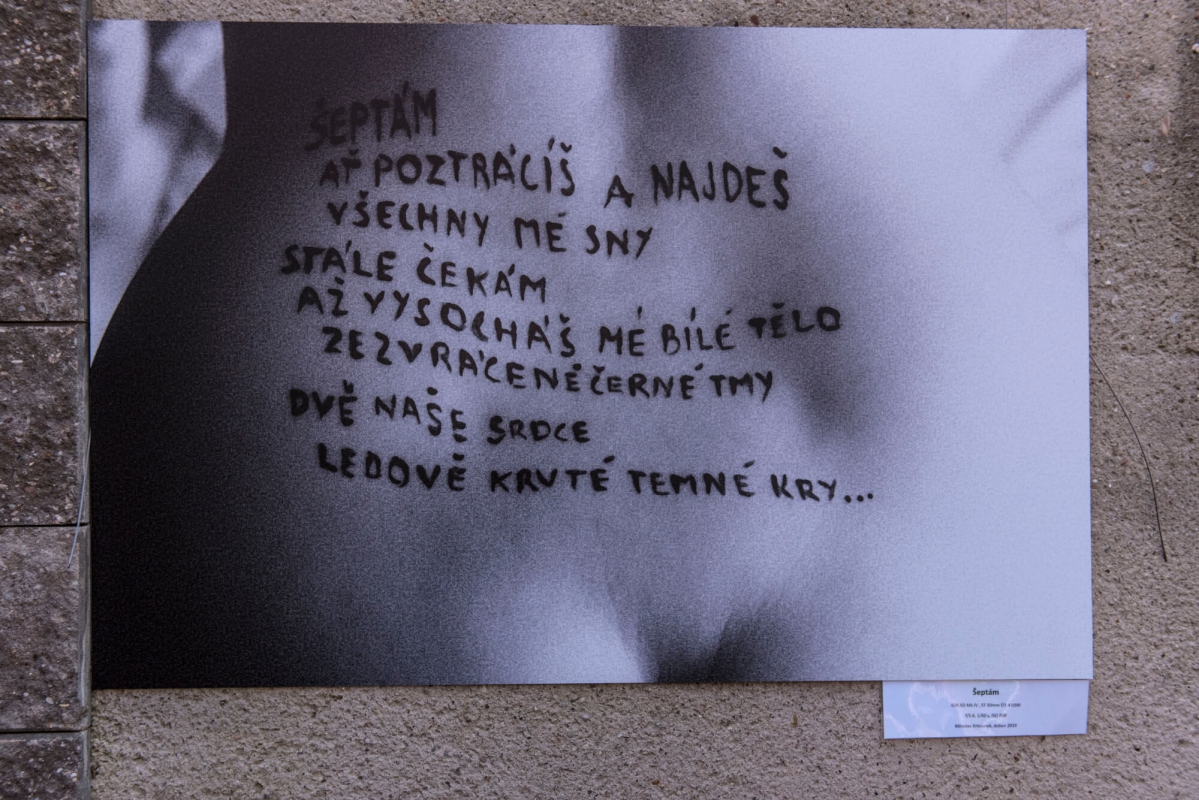 ŠEPTÁM
AŤ POZTRÁCÍŠ A NAJDEŠ
VŠECHNY MÉ SNY
STÁLE ČEKÁM
AŽ VYSOCHÁŠ MÉ BÍLÉ TĚLO
ZE ZVRÁCENÉ ČERNÉ TMY
DVĚ NAŠE SRDCE
LEDOVĚ KRUTÉ TEMNÉ KRY...
Šeptám